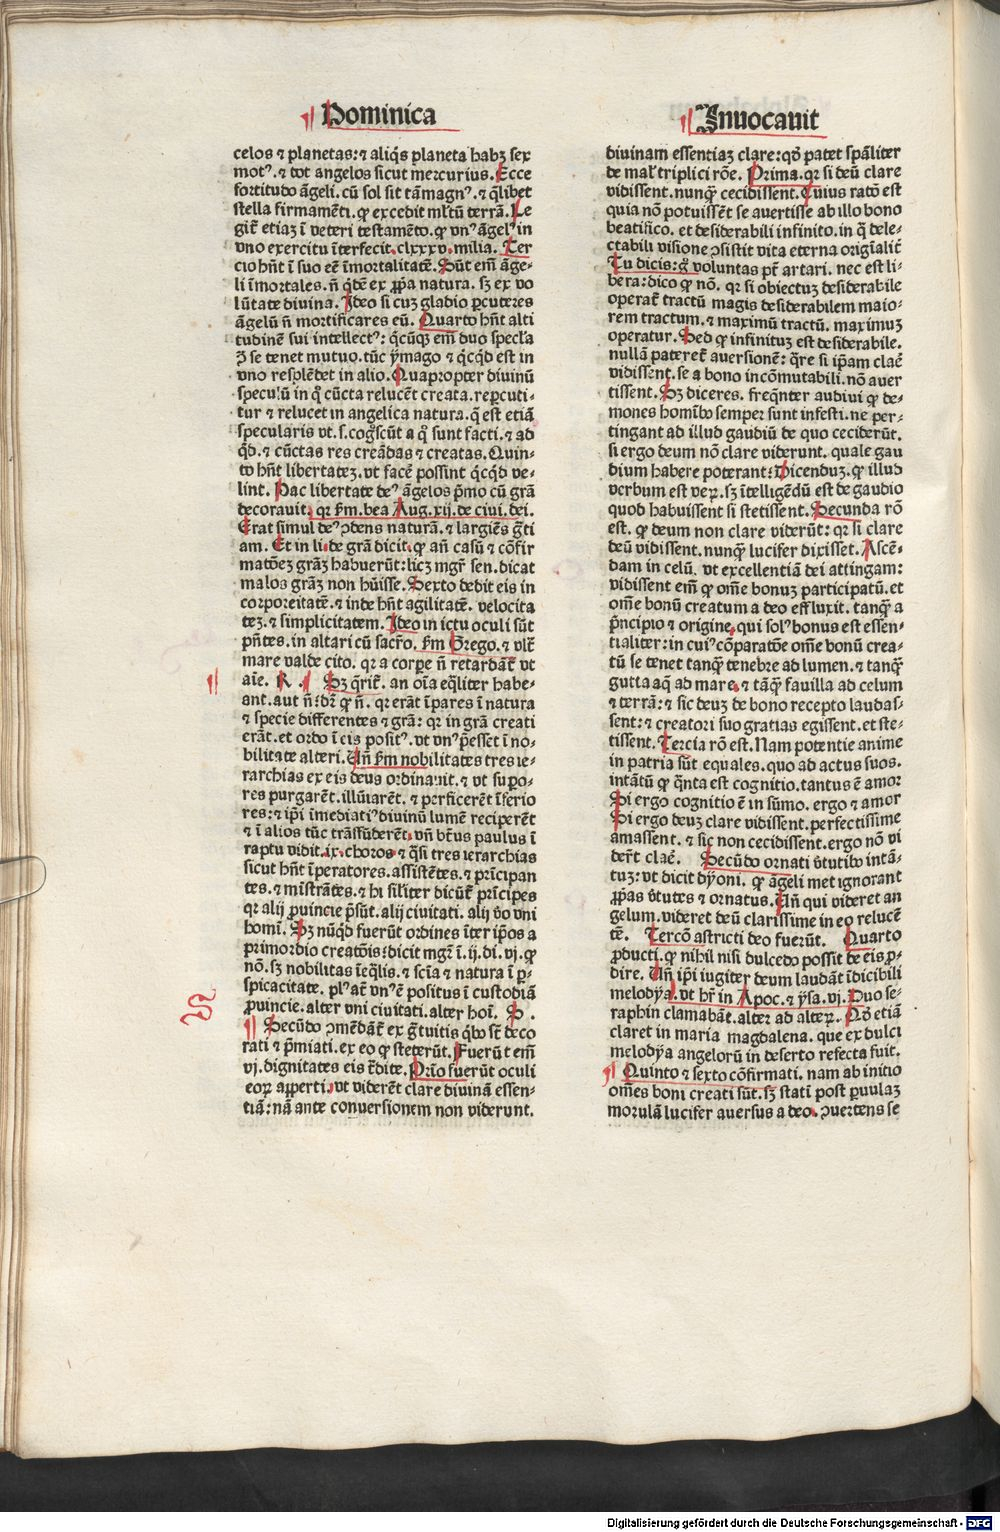 Dominica
celos ⁊ planetas:⁊ aliq̄s planeta habꝫ sex
motꝰ.⁊ tot angelos sicut mercurius. Ecce
fortitudo āgeli. cū sol sit tā magnꝰ.⁊ q̄libet
stella firmamēti. ꝙ excedit ml̓tū terrā. Le
git̓ etiaꝫ ī veteri testamēto. ꝙ vnꝰ āgelꝰ in
vno exercitu īterfecit. clxxxv. milia. Ter
cio hn̄t ī suo eē īmortalitatē. Sūt em̄ āge⸗
li īmortales. n̄ q̄dē ex ꝓp̄a natura. sꝫ ex vo
lūtate diuina. Ideo si cuꝫ gladio ꝑcuteres
āgelū n̄ mortificares eū. Quarto hn̄t alti
tudinē sui intellectꝰ: q̄cūqꝫ em̄ duo specl̓a
ꝯ se tenet mutuo. tūc ymago ⁊ q̄cq̄d est in
vno resplēdet in alio. Quapropter diuinū
speculū in q̊ cūcta relucēt creata. reꝑcuti⸗
tur ⁊ relucet in angelica natura. q̄ est etiā
specularis vt. s. cog̊scūt a q̊ sunt facti. ⁊ ad
q̊d. ⁊ cūctas res creādas ⁊ creatas. Quin⸗
to hn̄t libertateꝫ. vt facē possint q̄cq̄d ve⸗
lint. Hac libertate deꝰ āgelos p̄mo cū grā
decorauit. qr ẜm. bea Aug. xij. de ciui. dei.
Erat simul deꝰ ꝯdens naturā. ⁊ largiēs ḡti
am. Et in li. de grā dicit. ꝙ an̄ casū ⁊ cōfir
matōeꝫ grāꝫ habuerūt: licꝫ mgr̄ sen. dicat
malos grāꝫ non hūisse. Sexto dedit eis in
corporeitatē. ⁊ inde hn̄t agilitatē. velocita
teꝫ. ⁊ simplicitatem. Ideo in ictu oculi sūt
pn̄tes. in altari cū sacr̄o. ẜm Grego. ⁊ vlt̄
mare valde cito. qr a corꝑe n̄ retardāt̓ vt
aīe. R. Sꝫ q̄rit̓. an oīa eq̄liter habe⸗
ant. aut n̄: dr̄ ꝙ n̄. qr erāt īpares ī natura
⁊ specie differentes ⁊ grā: qr in grā creati
erāt. et ordo ī eis positꝰ. vt vnꝰ p̄esset ī no⸗
bilitate alteri. Un̄ ẜm nobilitates tres ie⸗
rarchias ex eis deus ordinauit. ⁊ vt suꝑo⸗
res purgarēt. illūiarēt. ⁊ ꝑficerēt īferio
res: ⁊ ip̄i īmediatiꝰ diuinū lumē reciperēt
⁊ ī alios tūc trāsfūderēt. vn̄ bt̄us paulus ī
raptu vidit. ix. choros. ⁊ q̄si tres ierarchias
sicut hn̄t īperatores. assistētes. ⁊ prīcipan
tes. ⁊ mīstrātes. ⁊ hi sil̓iter dicūt̓ prīcipes
qr alij ꝓuincie p̄sūt. alij ciuitati. alij v̓o vni
homī. Sꝫ nūq̄d fuerūt ordines īter ip̄os a
primordio creatōis: dicit mgr̄ ī. ij. di. vj. ꝙ
nō. sꝫ nobilitas īeq̄lis. ⁊ scīa ⁊ natura ī ꝑ⸗
spicacitate. plꝰ at̄ vnꝰ ē positus ī custodiā
ꝓuincie. alter vni ciuitati. alter hoī. S.
Secūdo ꝯmēdāt̓ ex ḡtuitis q̄bꝰ st̄ deco
rati ⁊ p̄miati. ex eo ꝙ steterūt. Fuerūt em̄
vj. dignitates eis t̄dite. Prīo fuerūt oculi
eoꝝ aꝑerti. vt viderēt clare diuinā essen⸗
tiā: nā ante conuersionem non viderunt.
Inuocauit
diuinam essentiaꝫ clare: qd̓ patet spāliter
de mal̓ triplici rōe. Prima. qr si deū clare
vidissent. nunqꝫ cecidissent. Cuius ratō est
quia nō potuissēt se auertisse ab illo bono
beatifico. et desiderabili infinito. in q̄ dele⸗
ctabili visione ꝯsistit vita eterna originalit̓
Tu dicis: g̊ voluntas pt̄ artari. nec est li⸗
bera: dico ꝙ nō. qr si obiectuꝫ desiderabile
operat̓ tractū magis desiderabilem maio⸗
rem tractum. ⁊ maximū tractū. maximuꝫ
operatur. Sed ꝙ infinituꝫ est desiderabile.
nullā pateret̓ auersionē: q̄re si ip̄am claē
vidissent. se a bono incōmutabili. nō auer
tissent. Sꝫ diceres. freq̄nter audiui ꝙ de⸗
mones homībꝰ semper sunt infesti. ne per⸗
tingant ad illud gaudiū de quo ceciderūt.
si ergo deum nō clare viderunt. quale gau
dium habere poterant: Dicenduꝫ. ꝙ illud
verbum est veꝝ. sꝫ ītelligēdū est de gaudio
quod habuissent si stetissent. Secunda rō
est. ꝙ deum non clare viderūt: qr si clare
deū vidissent. nunqꝫ lucifer dixisset. Ascē⸗
dam in celū. vt excellentiā dei attingam:
vidissent em̄ ꝙ om̄e bonuꝫ participatū. et
om̄e bonū creatum a deo effluxit. tanqꝫ a
p̄ncipio ⁊ origine. qui solꝰ bonus est essen⸗
tialiter: in cuiꝰ cōparatōe om̄e bonū crea⸗
tū se tenet tanqꝫ tenebre ad lumen. ⁊ tanqꝫ
gutta aq̄ ad mare. ⁊ tāqꝫ fauilla ad celum
⁊ terrā: ⁊ sic deuꝫ de bono recepto laudas⸗
sent: ⁊ creatori suo gratias egissent. et ste⸗
tissent. Tercia rō est. Nam potentie anime
in patria sūt equales. quo ad actus suos.
intātū ꝙ q̄nta est cognitio. tantus ē amor
Si ergo cognitio ē in sūmo. ergo ⁊ amor
Si ergo deuꝫ clare vidissent. perfectissime
amassent. ⁊ sic non cecidissent. ergo nō vi
der̄t claē. Secūdo ornati v̓tutibꝰ intā⸗
tuꝫ: vt dicit dyoni. ꝙ āgeli met ignorant
ꝓp̄as v̓tutes ⁊ ornatus. Un̄ qui videret an
gelum. videret deū clarissime in eo relucē
tē. Tercō astricti deo fuerūt. Quarto
ꝓducti. ꝙ nihil nisi dulcedo possit de eis ꝓ⸗
dire. Un̄ ip̄i iugiter deum laudāt īdicibili
melodya. vt hr̄ in Apoc. ⁊ ysa. vj. Duo se⸗
raphin clamabāt. alter ad alteꝝ. Qd̓ etiā
claret in maria magdalena. que ex dulci
melodya angelorū in deserto refecta fuit.
Quinto ⁊ sexto cōfirmati. nam ab initio
om̄es boni creati sūt. sꝫ statī post ꝑuulaꝫ
morulā lucifer auersus a deo. ꝯuertens se
Digitalisierung gefördert durch die Deutsche Forschungsgemeinschaft - DFG